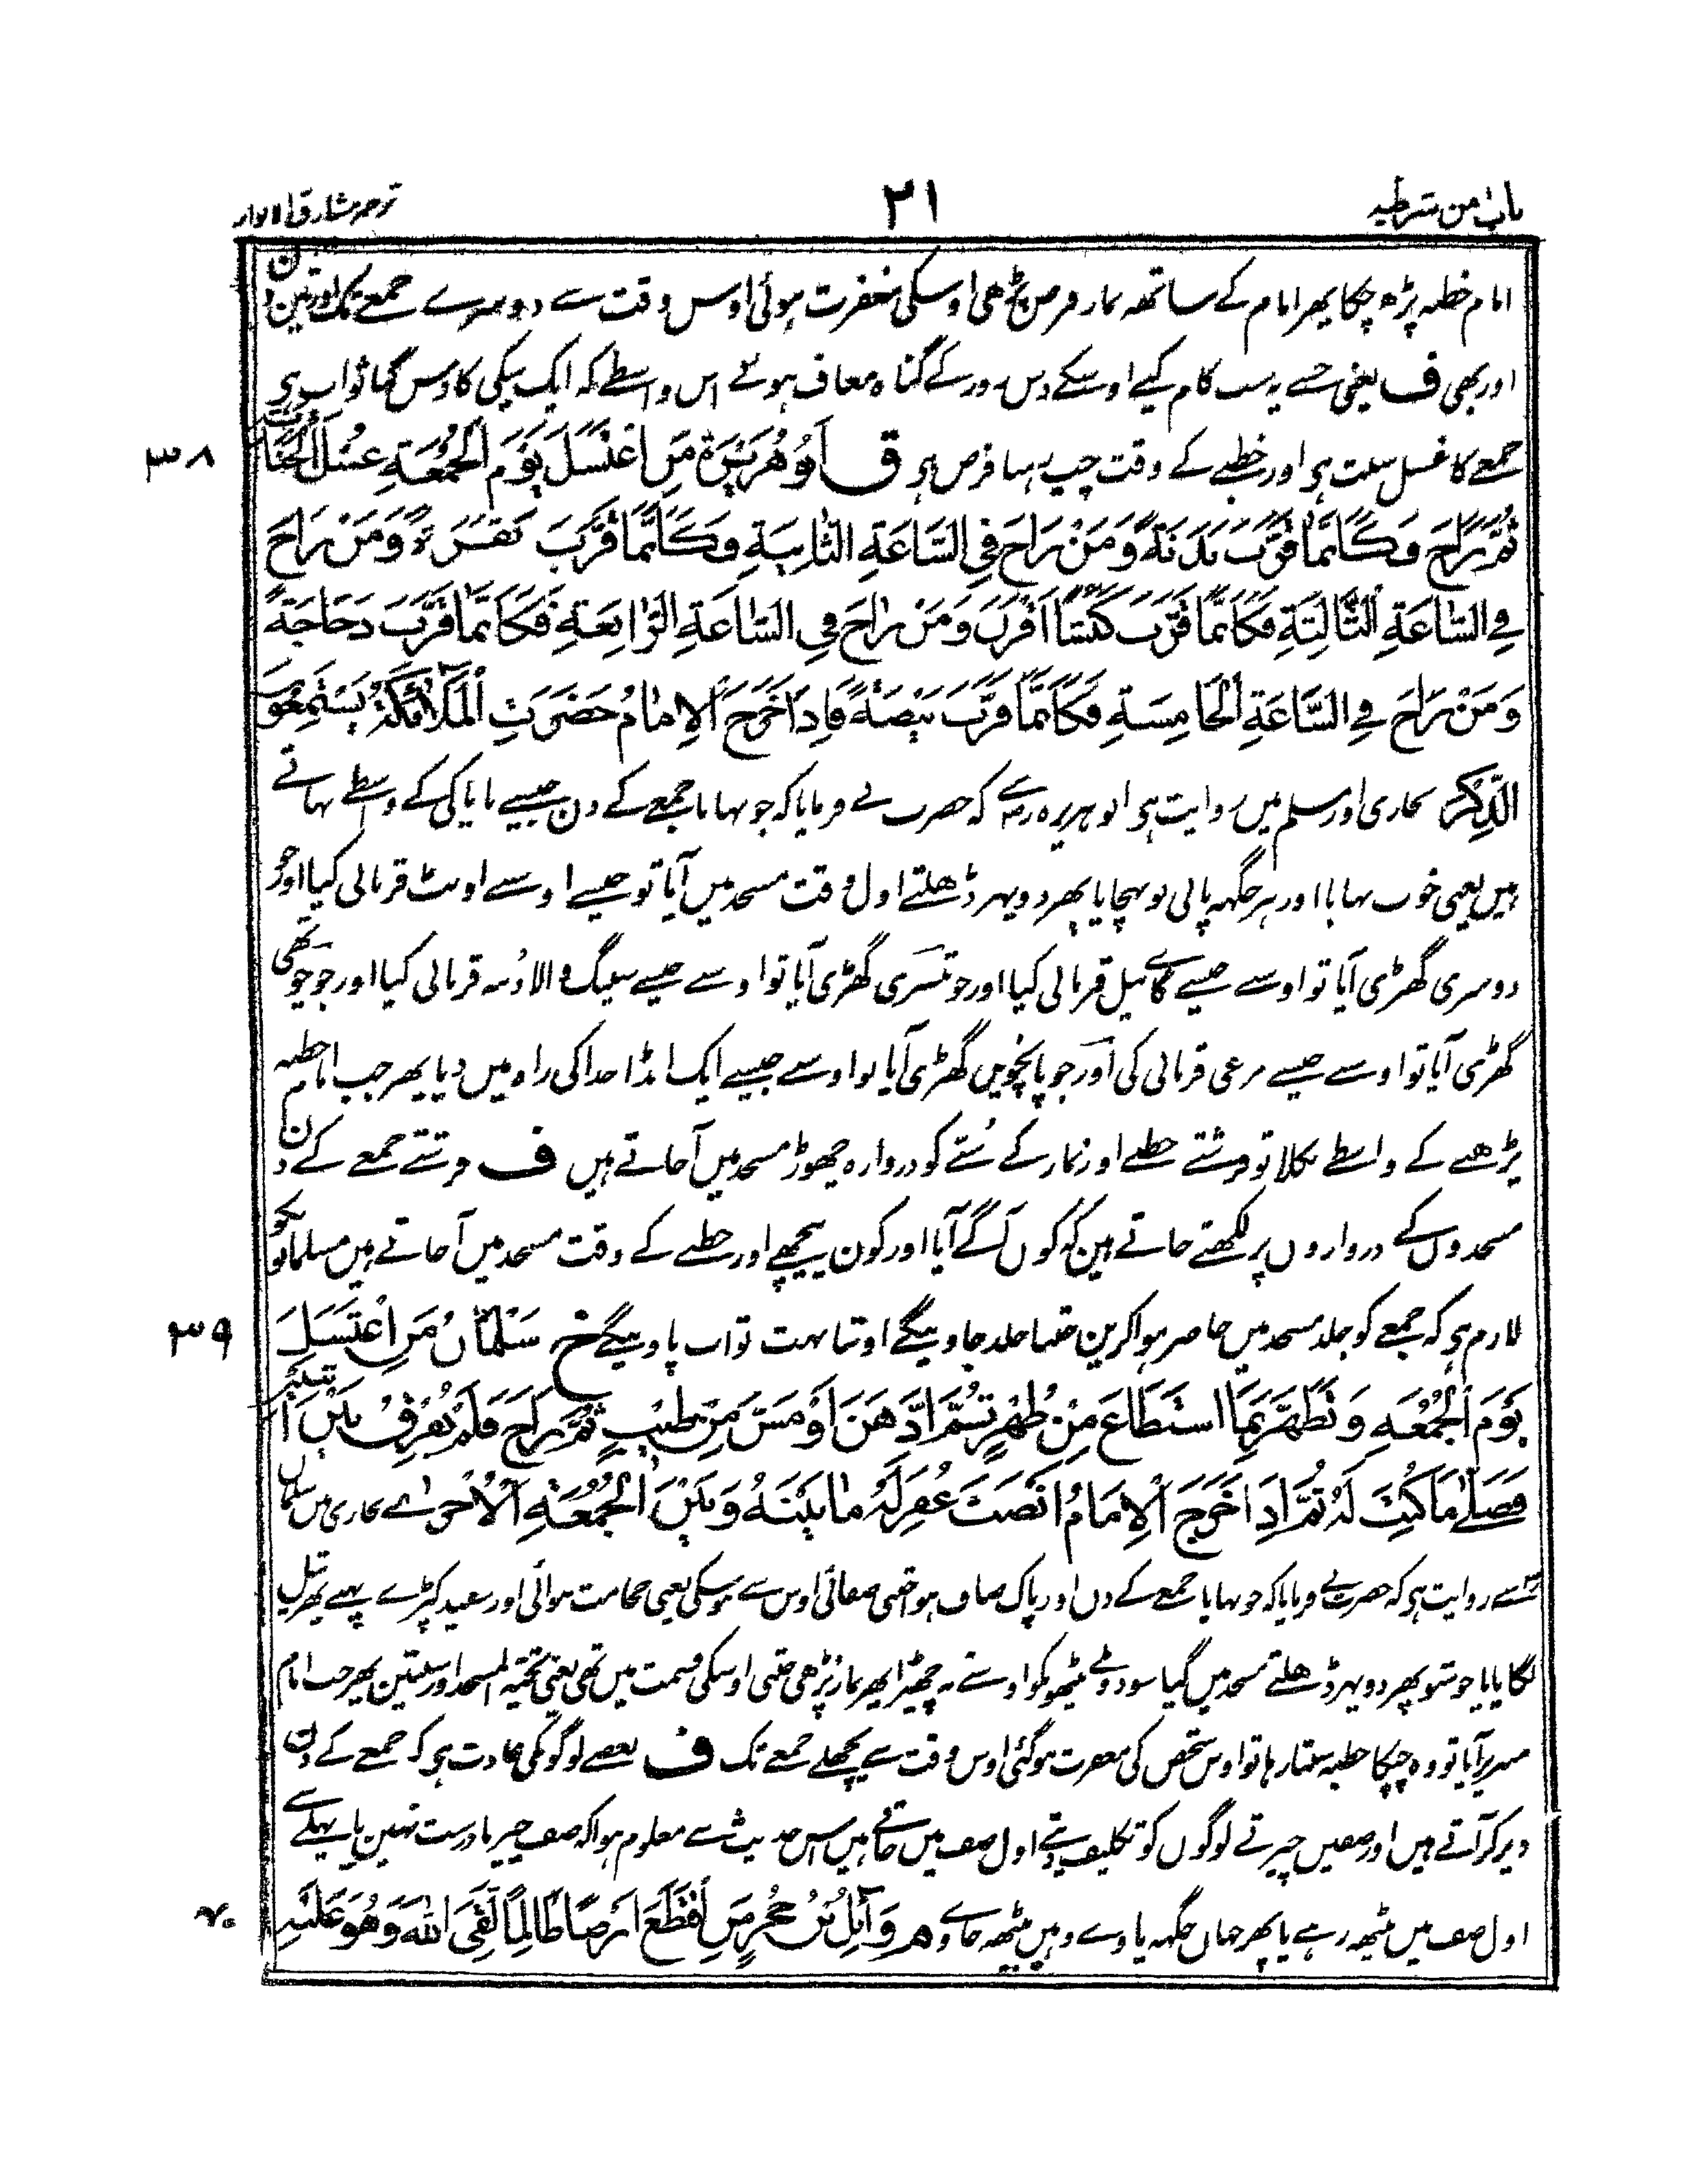 باب من شرطیه
۲۱
ترجمہ مشارق الانوار
امام خطبہ پڑھ چکا پھر امام کے ساتھہ نماز فرض پڑھی اوسکی مغفرت ہوئی اوس وقت سے دوسرے جمعے تک اور تین دن
اور بھی ف یعنی جسنے یہ سب کام کیے اوسکے دس روز کے گناہ معاف ہوئے اس واسطے کہ ایک نیکی کا دس گنا ثواب ہی
جمعے کا غسل سنت ہی اور خطبے کے وقت چپ رہنا فرض ہی ق اَبُو هُرَيْرَةَ مَنِ اغْتَسَلَ يَوْمَ الْجُمُعَةِ غُسْلَ الْجَنَابَةِ
۳۸
ثُمَّ رَاحَ فَكَأَنَّمَا قَرَّبَ بَدَنَةً وَمَنْ رَاحَ فِي السَّاعَةِ الثَّانِيَةِ فَكَأَنَّمَا قَرَّبَ بَقَرَةً وَمَنْ رَاحَ
فِي السَّاعَةِ الثَّالِثَةِ فَكَأَنَّمَا قَرَّبَ كَبْشًا اَقْرَنَ وَمَنْ رَاحَ فِي السَّاعَةِ الرَّابِعَةِ فَكَأَنَّمَا قَرَّبَ دَجَاجَةً
وَمَنْ رَاحَ فِي السَّاعَةِ الْخَامِسَةِ فَكَأَنَّمَا قَرَّبَ بَيْضَةً فَاِذَا خَرَجَ الْاِمَامُ حَضَرَتِ الْمَلَائِكَةُ يَسْتَمِعُونَ
الذِّكْرَ بخاری اور مسلم میں روایت ہی ابو ہریرہ رض سے کہ حضرت نے فرمایا کہ جو نہایا جمعے کے دن جیسے ناپاکی کے واسطے نہاتے
ہیں یعنی خوب نہایا اور ہر جگہہ پانی پونہچایا پھر دوپہر ڈھلتے اول وقت مسجد میں آیا تو جیسے اوسنے اونٹ قربانی کیا اور جو
دوسری گھڑی آیا تو اوسنے جیسے گائے بیل قربانی کیا اور جو تیسری گھڑی آیا تو اوسنے جیسے سینگ والا دنبہ قربانی کیا اور جو چوتھی
گھڑی آیا تو اوسنے جیسے مرغی قربانی کی اور جو پانچویں گھڑی آیا تو اوسنے جیسے ایک انڈا خدا کی راہ میں دیا پھر جب امام خطبہ
پڑھنے کے واسطے نکلا تو فرشتے خطبے اور نماز کے سننے کو دروازہ چھوڑ مسجد میں آ جاتے ہیں ف فرشتے جمعے کے دن
مسجدوں کے دروازوں پر لکھتے جاتے ہین کہ کون آگے آیا اور کون پیچھے اور خطبے کے وقت مسجد میں آ جاتے ہیں مسلمانوں کو
لازم ہی کہ جمعے کو جلد مسجد میں حاضر ہوا کرین جتنا جلد جاوینگے اوتنا بہت ثواب پاوینگے خ سَلْمَانُ مَنِ اغْتَسَلَ
۳۹
يَوْمَ الْجُمُعَةِ وَتَطَهَّرَ بِمَا اسْتَطَاعَ مِنْ طُهْرٍ ثُمَّ ادَّهَنَ اَوْ مَسَّ مِنْ طِيْبٍ ثُمَّ رَاحَ فَلَمْ يُفَرِّقْ بَيْنَ اثْنَيْنِ
فَصَلَّى مَا كُتِبَ لَهُ ثُمَّ اِذَا خَرَجَ الْاِمَامُ اَنْصَتَ غُفِرَ لَهُ مَا بَيْنَهُ وَبَيْنَ الْجُمُعَةِ الْاُخْرٰى بخاری میں سلمان
سے روایت ہی کہ حضرت نے فرمایا کہ جو نہایا جمعے کے دن اور پاک صاف ہوا جتنی صفائی اوس سے ہو سکی یعنی حجامت بنوائی اور سفید کپڑے پہنے پھر تیل
لگایا یا خوشبو پھر دوپہر ڈھلتے مسجد میں گیا سو دو بیٹھوں کو اوسنے نہ چھیڑا پھر نماز پڑھی جتنی اوسکی قسمت میں تھی یعنی تحیۃ المسجد اور سنتین پھر جب امام
منبر پر آیا تو وہ چپکا خطبہ سنتا رہا تو اوس شخص کی مغفرت ہو گئی اوس وقت سے پچھلے جمعے تک ف بعضے لوگوں کی عادت ہی کہ جمعے کے دن
دیر کر آتے ہیں اور صفیں چیرتے لوگوں کو تکلیف دیتے اول صف میں جاتے ہیں اس حدیث سے معلوم ہوا کہ صف چیرنا درست نہین یا پہلے سے
اول صف میں بیٹھہ رہے یا پھر جہاں جگہہ پاوے وہیں بیٹھہ جاوے م وَآئِلُ بْنُ حُجْرٍ مَنِ اقْتَطَعَ اَرْضًا ظَالِمًا لَقِيَ اللهَ وَهُوَ عَلَيْهِ
۴۰